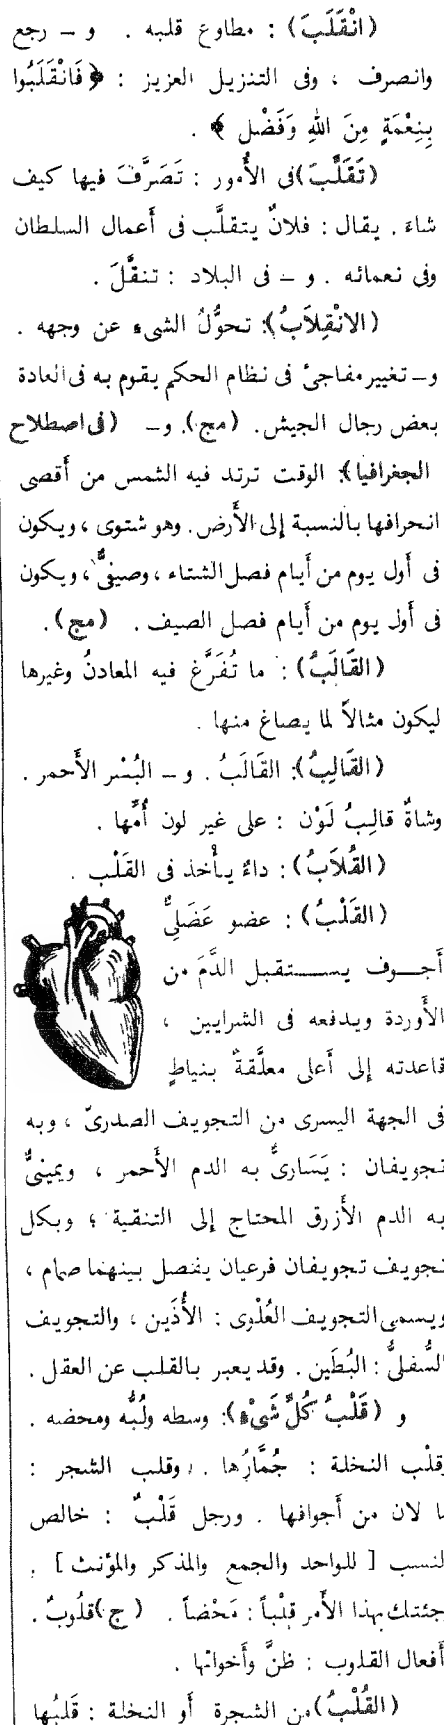 (انْقَلَبَ) : مطاوع قلبه . و – رجع
وانصرف ، وفى التنزيل العزيز : ﴿ فَانْقَلَبُوا
بِنِعْمَةٍ مِنَ اللهِ وَفَضْلٍ ﴾ .
(تَقَلَّبَ) فى الأُمور : تَصَرَّفَ فيها كيف
شاءَ . يقال : فلانٌ يتقلَّب فى أَعمال السلطان
وفى نعمائه . و – فى البلاد : تنقَّلَ .
(الانْقِلاَبُ) : تحوُّلُ الشىءِ عن وجهه .
و– تغيير مفاجئ فى نظام الحكم يقوم به فى العادة
بعض رجال الجيش. (مج). و– (فى اصطلاح
الجغرافيا) : الوقت ترتد فيه الشمس من أَقصى
انحرافها بالنسبة إلى الأَرض. وهو شتوى ، ويكون
فى أَول يوم من أَيام فصل الشتاء ، وصيفىٌّ ، ويكون
فى أَول يوم من أَيام فصل الصيف . (مج) .
(القَالَبُ) : ما تُفَرَّغ فيه المعادنُ وغيرها
ليكون مثالاً لما يصاغ منها .
(القَالِبُ) : القَالَبُ . و – البُسْر الأَحمر .
وشاةٌ قالِبُ لَوْن : على غير لون أُمِّها .
(القُلاَبُ) : داءٌ يأْخذ فى القَلْب .
(القَلْبُ) : عضو عَضَلِىٌّ
أَجــوف يســـتقبل الدَّمَ من
الأَوردة ويدفعه فى الشرايين ،
قاعدته إلى أَعلى معلَّقةٌ بنياطٍ
فى الجهة اليسرى من التجويف الصدرىّ ، وبه
تجويفان : يَسَارىٌّ به الدم الأَحمر ، ويمينىٌّ
به الدم الأَزرق المحتاج إلى التنقية ؛ وبكل
تجويف تجويفان فرعيان يفصل بينهما صمام ،
ويسمى التجويف العُلْوى : الأُذَين ، والتجويف
السُّفلىُّ : البُطَين . وقد يعبر بالقلب عن العقل .
و (قَلْبُ كُلِّ شَىْءٍ) : وسطه ولُبُّه ومحضه .
وقلْب النخلة : جُمَّارُها . وقلب الشجر :
ما لان من أَجوافها . ورجل قَلْبٌ : خالص
النسب [ للواحد والجمع والمذكر والمؤنث ] .
جئتك بهذا الأَمر قلْباً : مَحْضاً . (ج) قلُوبٌ .
أَفعال القلوب : ظنَّ وأَخواتها .
(القُلْبُ) من الشجرة أَو النخلة : قَلبُها